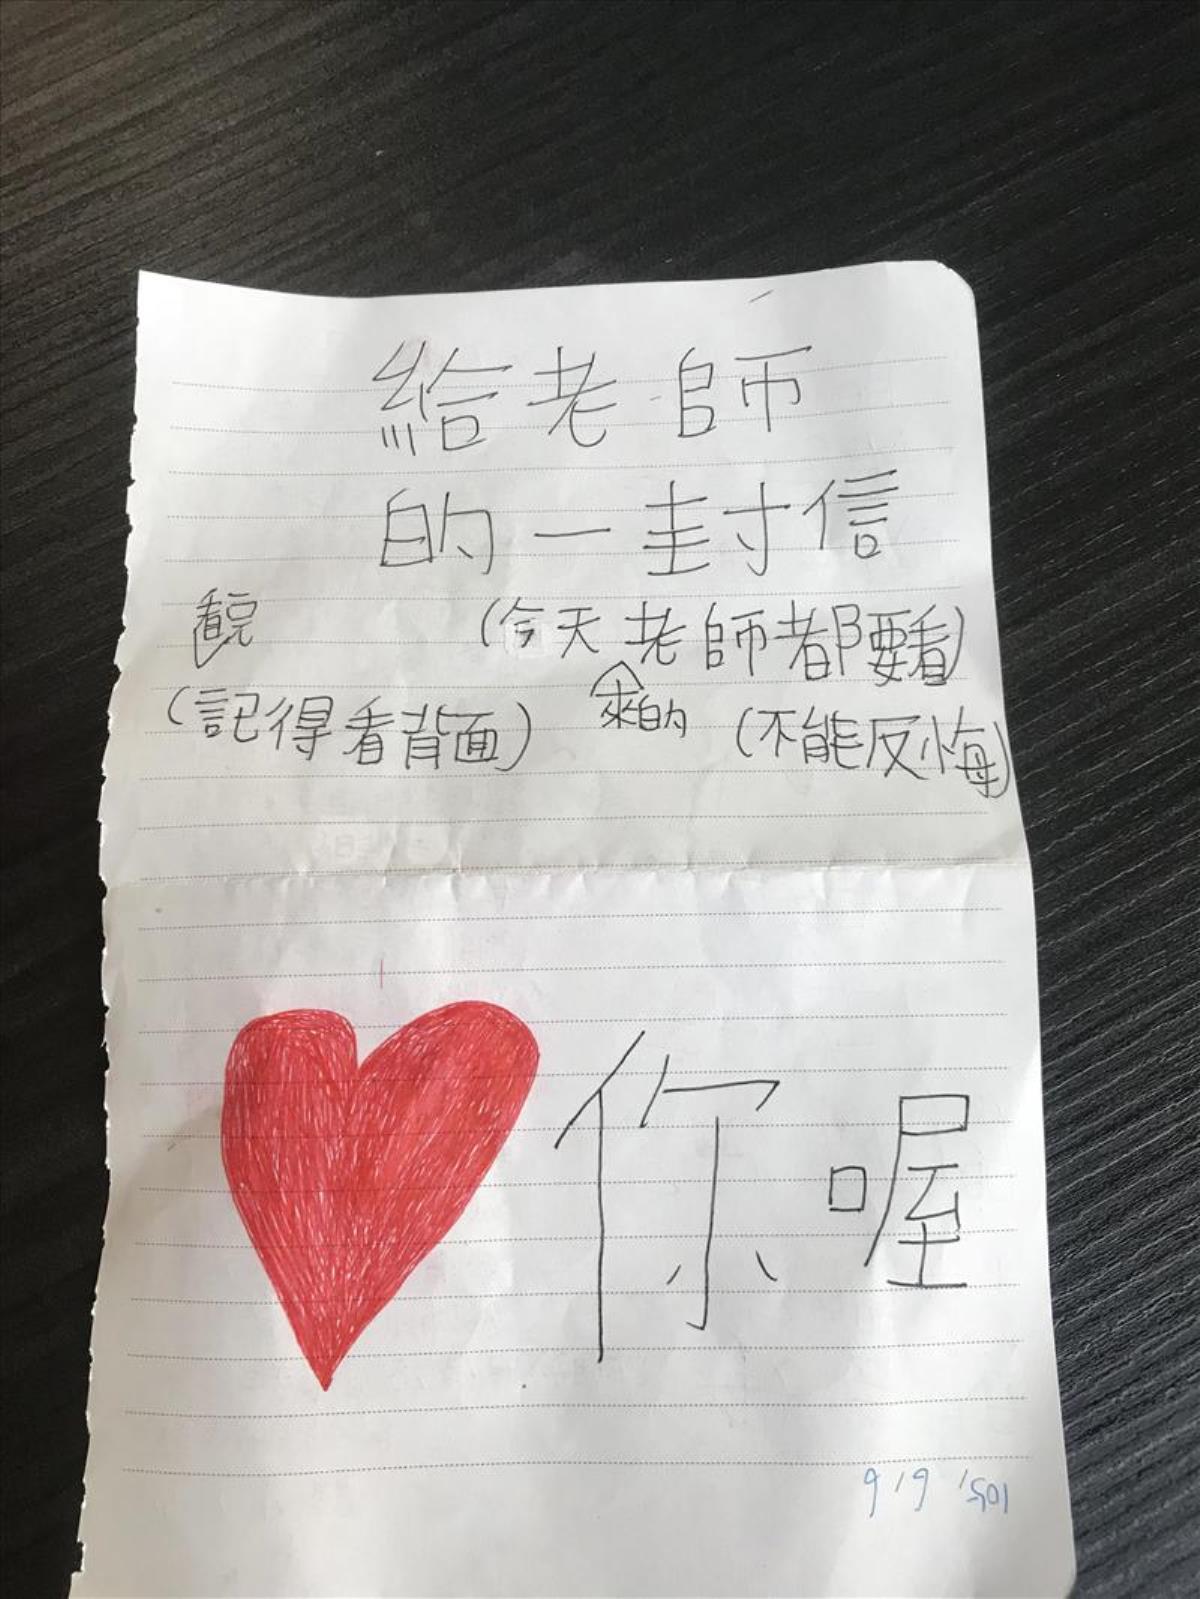 給老師
的一封信
看完
(今天老師者都要看)
來的
(記得看背面)
(不能反悔)
你喔
105/9/9